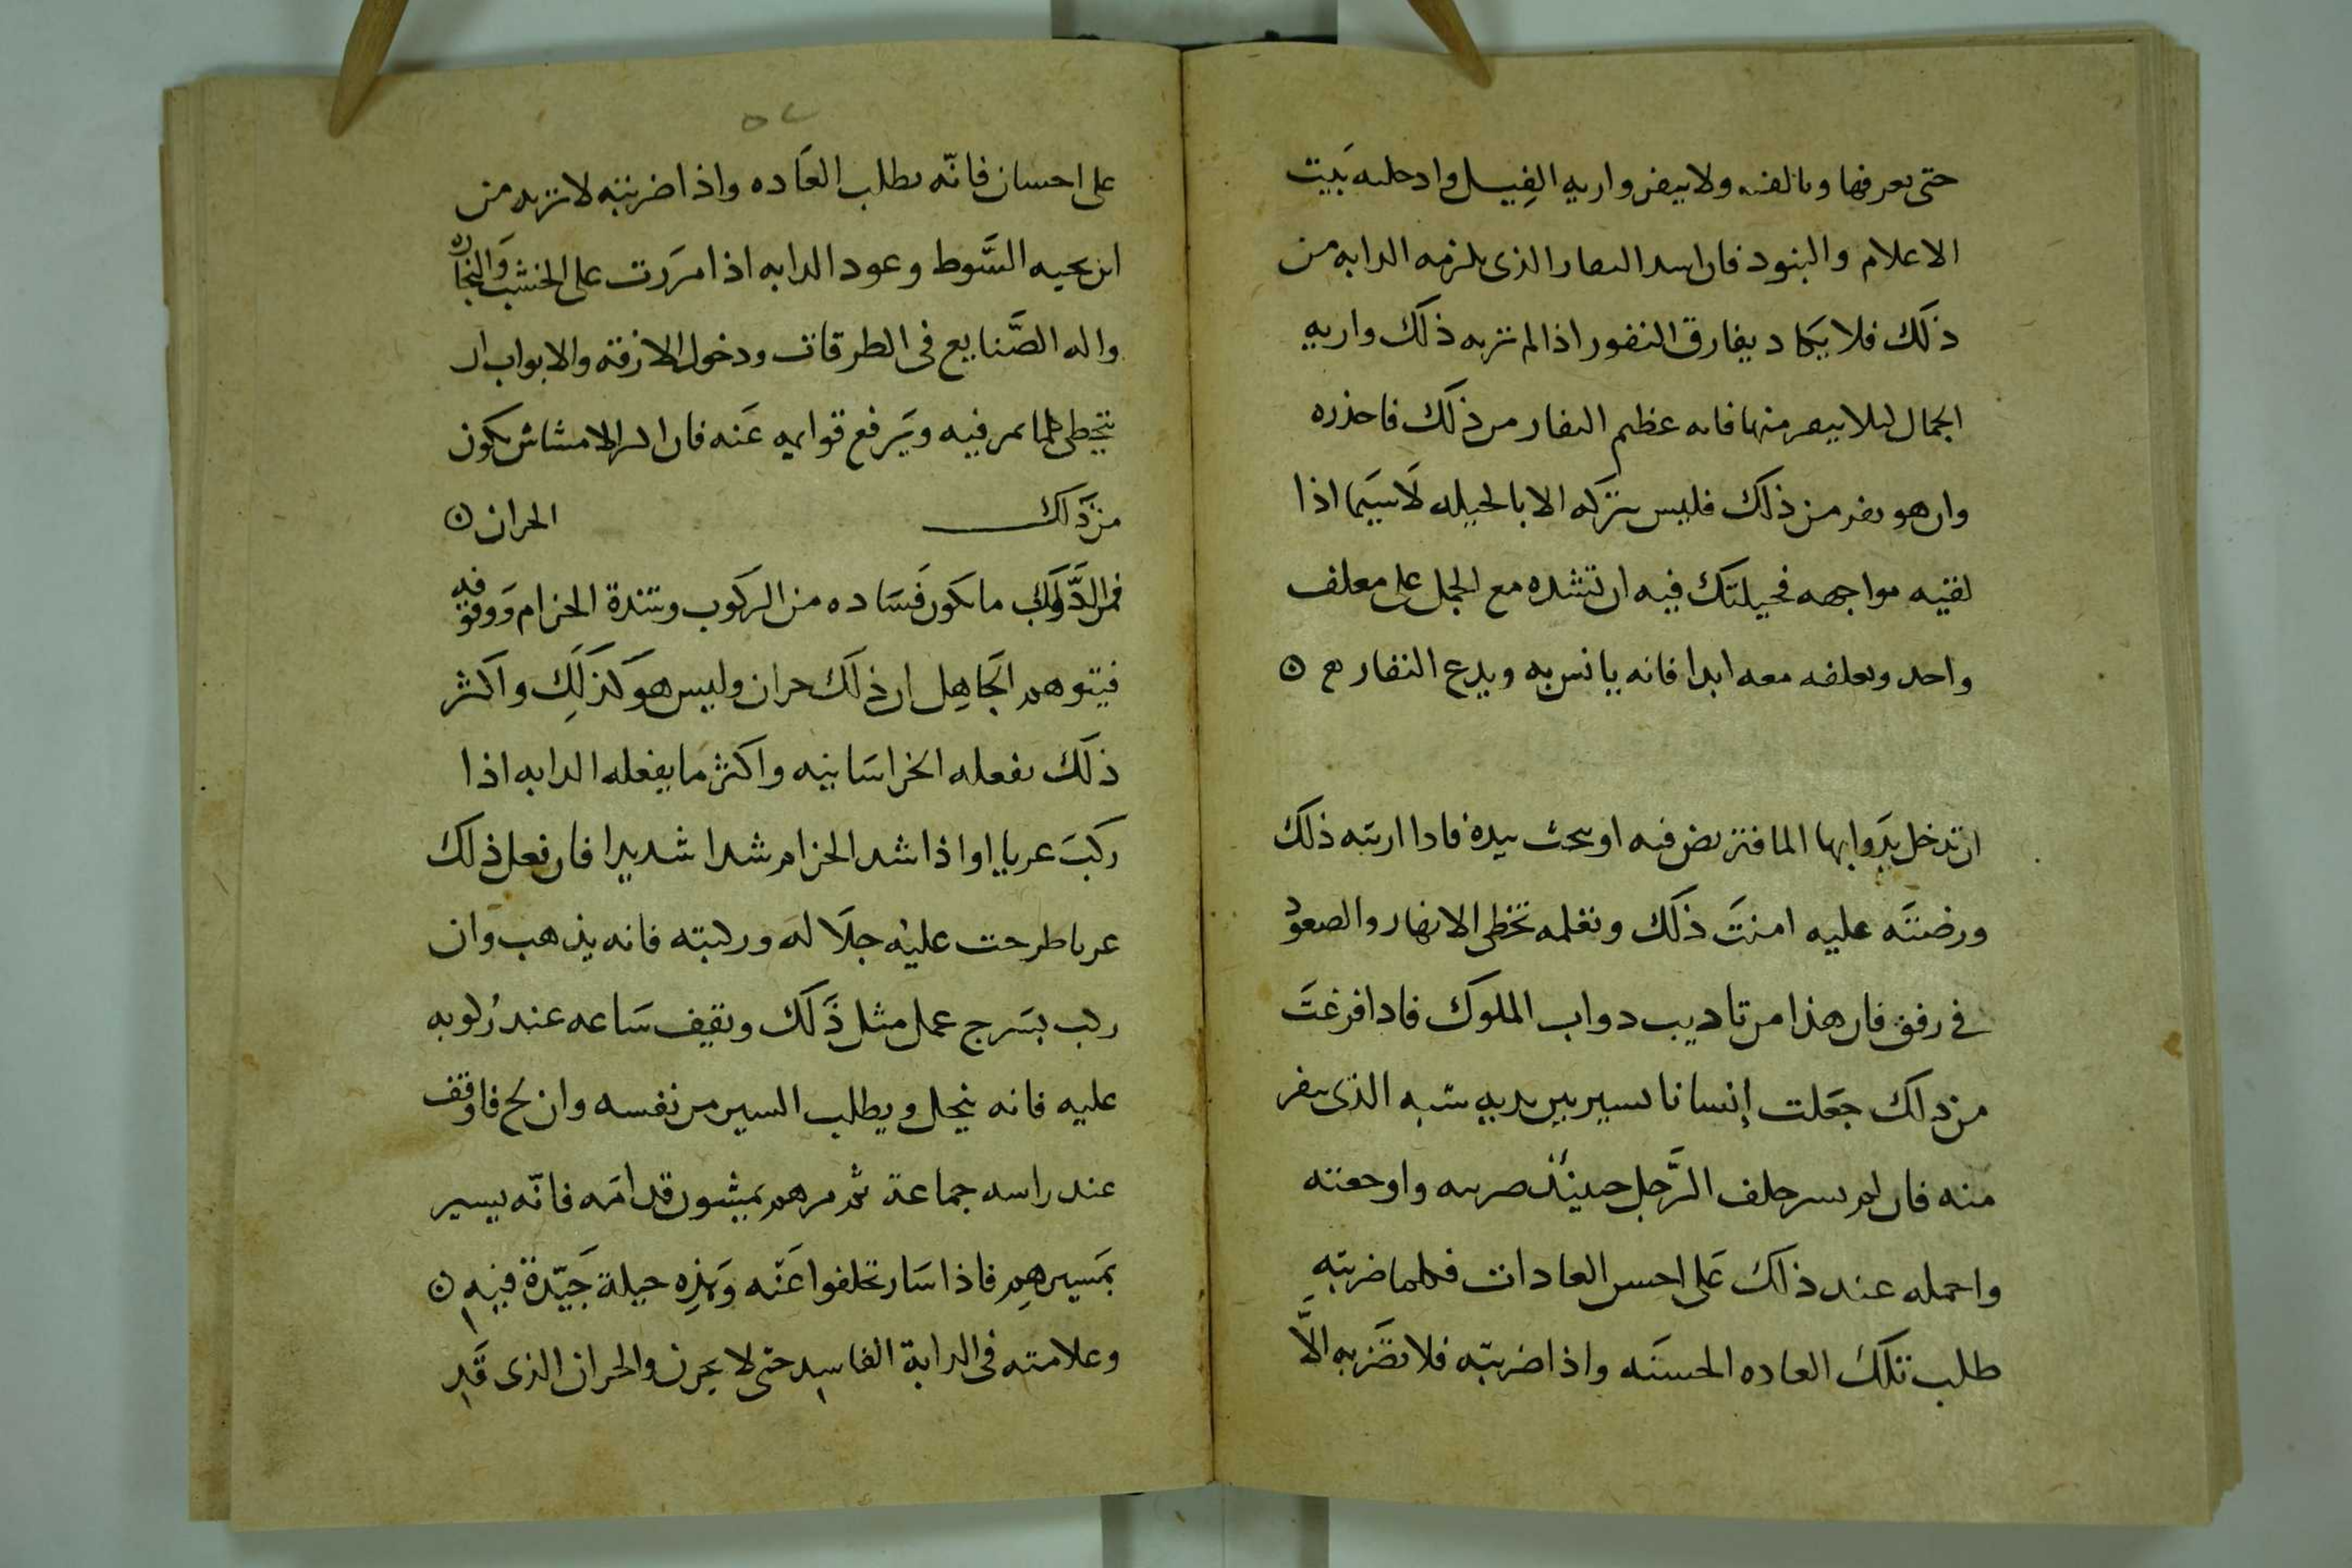 حتى يعرفها ويالفنه ولا ينفر واريه الفِيل وادخله بَيت
الاعلام والبنود فان اشد النفار الذى يلزمه الدابه من
ذلك فلا يكاد يفارق النفور اذا لم تربه ذلك واريه
الجمال ليلا ينفر منها فانه عظيم النفار من ذلك فاحذره
وان هو نفر من ذلك فليس يتركه الا بالحيله لَاسِيَما اذا
لقيه مواجهه فحيلتك فيه ان تشده مع الجمل على معلف
واحد وتعلفه معه ابدا فانه يانس به ويدع النفار مع
ان تدخل بدَوابها الما فتربض فيه او بحث بيده فاذا اريته ذلك
ورضتَه عليه امنتَ ذلك وتعلمه تخطى الانهار والصعود
فى رفق فان هذا من تاديب دواب الملوك فاذا فرغتَ
من ذلك جعَلت إنسانا يسير بين يديه شبه الذى ينفر
منه فان لم يسر خلف الرَّجل حينئذ ضربته واوجعته
واحمله عند ذلك عَلى احسن العادات فكلما ضربته
طلب تلك العاده الحسنَه واذا ضربته فلا تضَربه الَّا
٥٧
على احسان فانّه يطلب العَاده واذا ضربته لا تزيد من
ان يجيه السَّوط وعود الدابه اذا مرَرت على الخشب وَالنجاره
واله الصَّنايع فى الطرقات ودخول الازقه والابواب ان
يتخطى كلما يمر فيه ويَرفع قوايمه عَنه فان اكثر الامشاش يكون
من ذَلك الحران
فمن الدَّواب ما يكون فَسَاده من الركوب وشدة الحزام وَوقوفه
فيتوهم الجَاهِل ان ذلك حران وليس هو كذَلِك واكثر
ذلك يفعله الخراسَانيه واكثر ما يفعله الدابه اذا
ركبَ عريا او اذا شد الحزام شدا شديدا فان فعل ذلك
عريا طرحت عليْه جلَا له وركبته فانه يذهب وان
ركب بسَرج عمل مثل ذَلك ويقيف سَاعه عند رُكوبه
عليه فانه ينحل ويطلب السير من نفسه وان لج فاوقف
عند راسه جماعة ثم مرهم يمشون قدامَه فانّه يسير
بمَسيرهِم فاذا سَار تخلفوا عَنْه وَهذِه حيلة جَيّدة فيهِ
وعلامته فى الدابة الفاسِد حتى لا يَحرن والحران الذى قَدِ